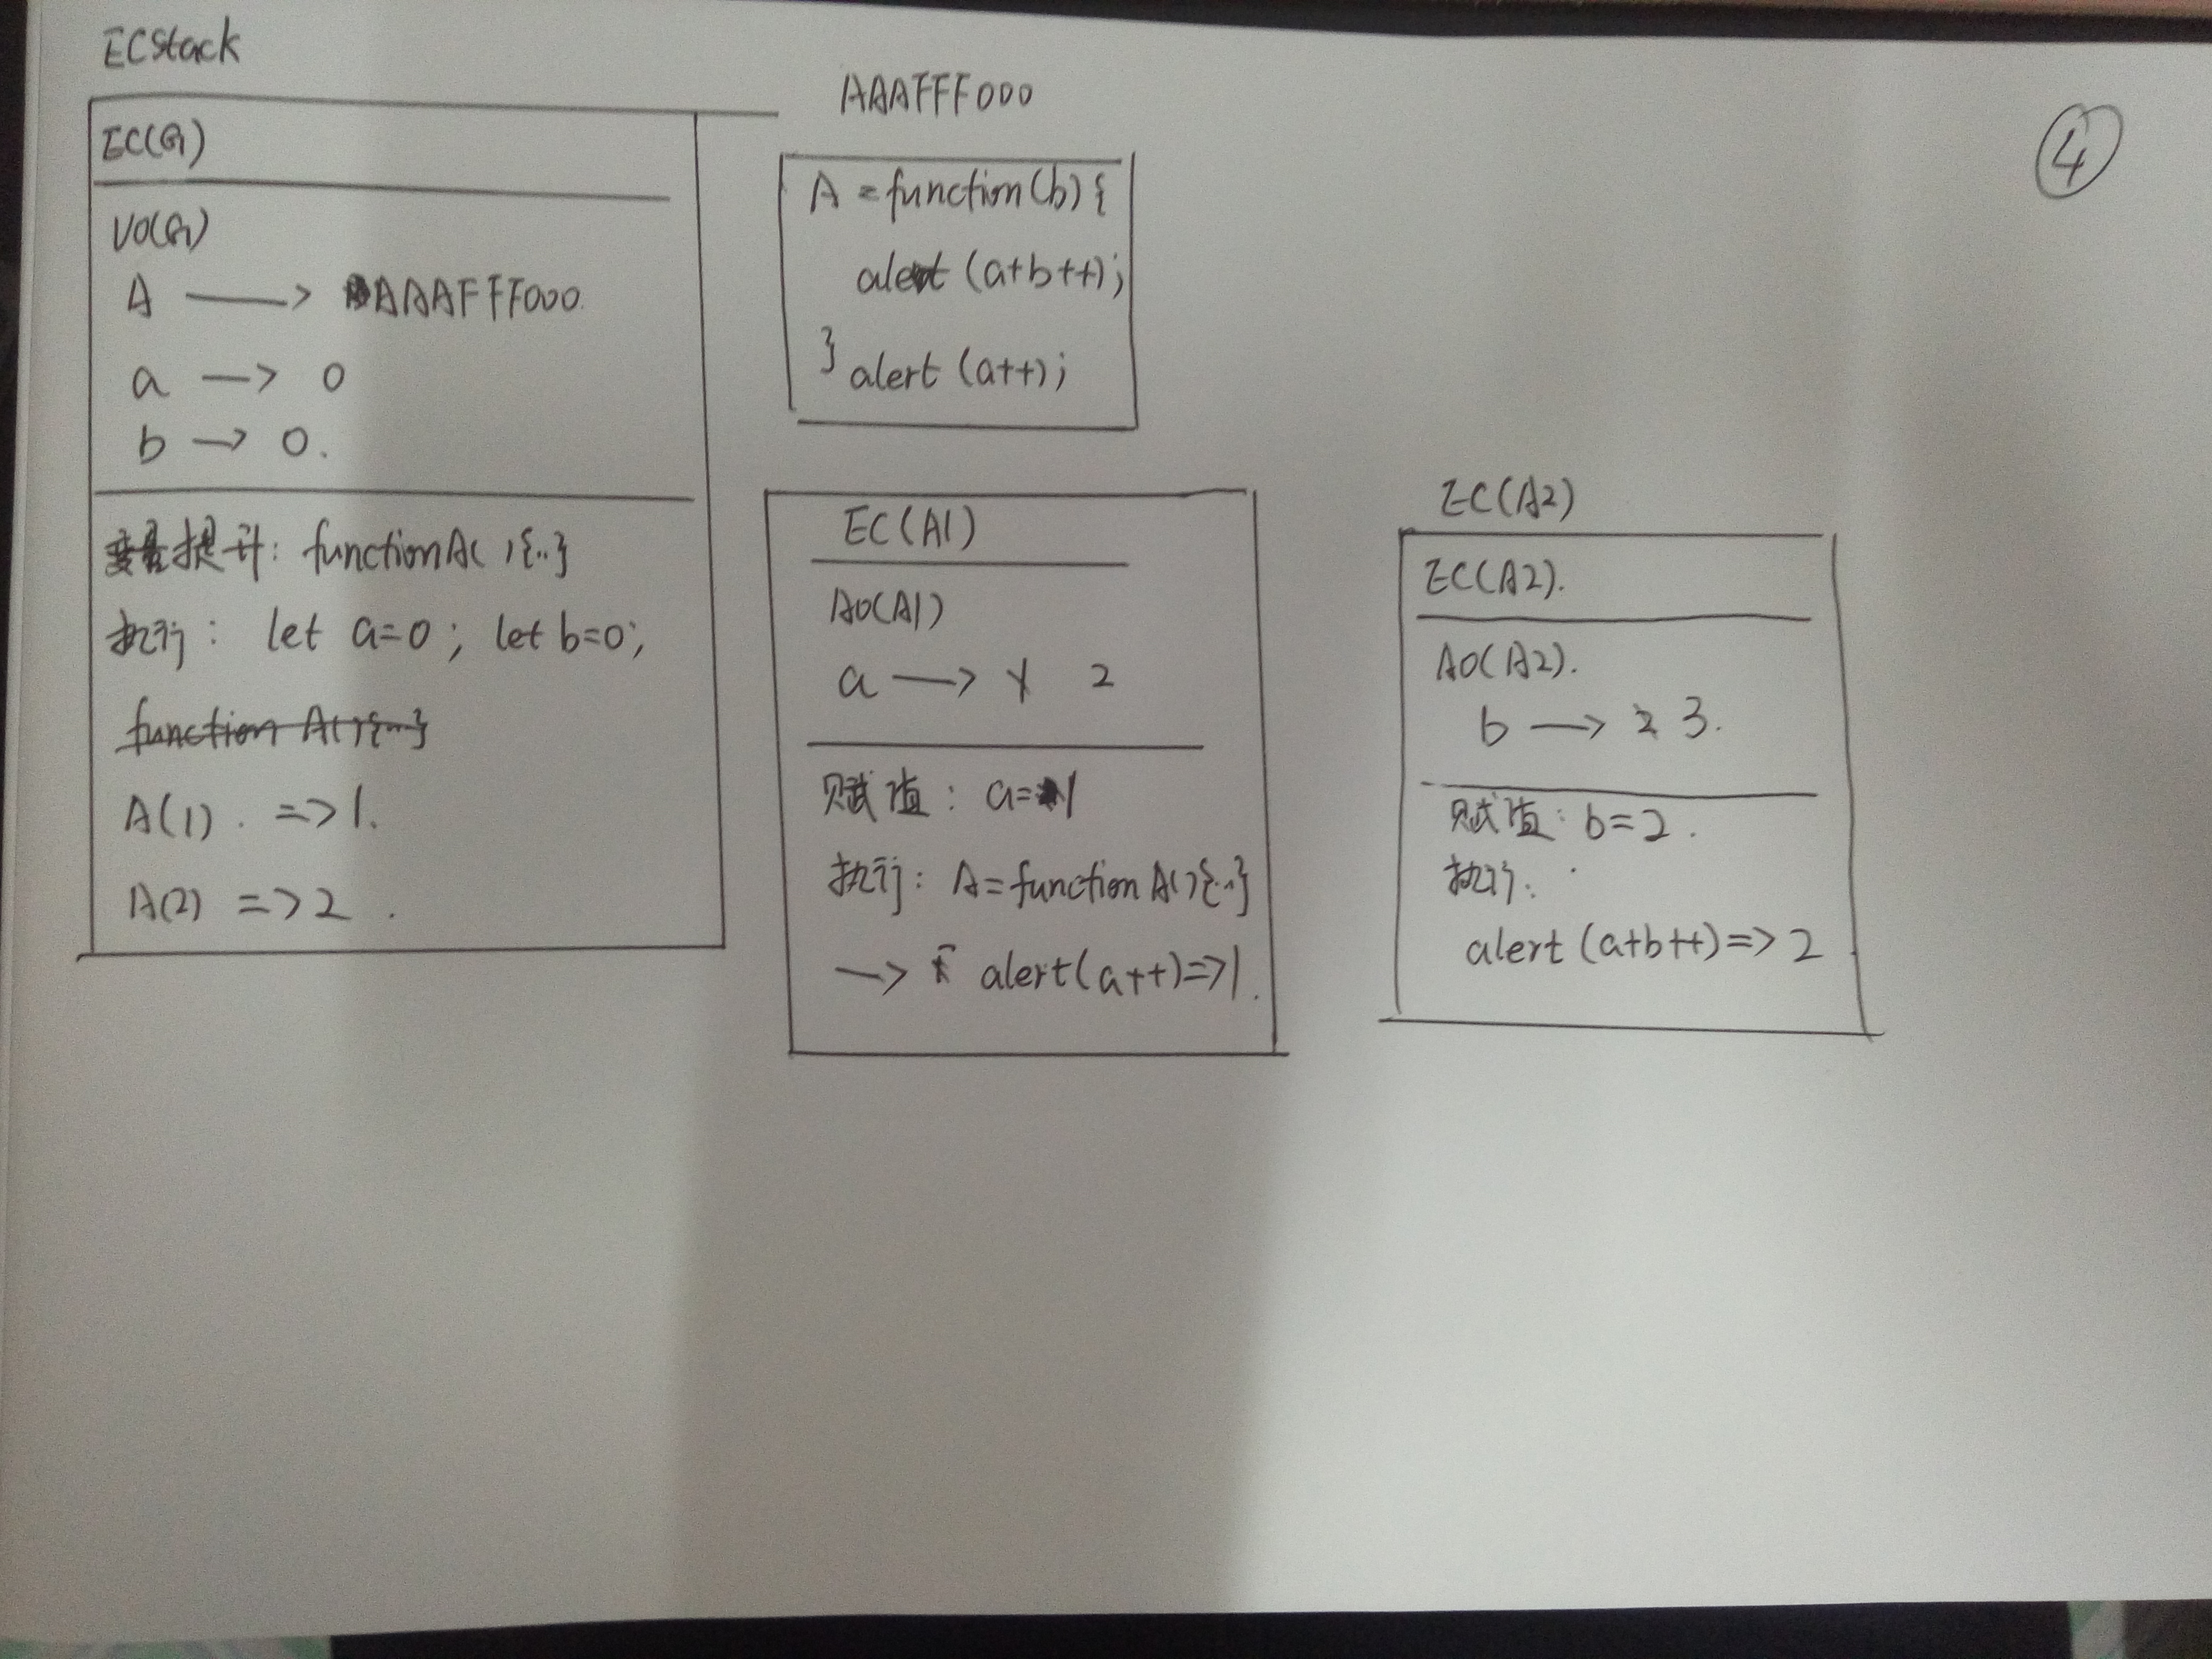 ECStack
EC(G)
VO(G)
A → AAAFFF000
a → 0
b → 0.
变量提升: function A( ){..}
执行: let a=0; let b=0;
function A( ){...}
A(1). => 1.
A(2) => 2.
AAAFFF000
A = function(b){
alert (a+b++);
} alert (a++);
EC(A1)
AO(A1)
a → 1 2
赋值: a=1
执行: A=function A( ){..}
→ alert(a++)=>1.
④
EC(A2)
EC(A2).
AO(A2).
b → 2 3.
赋值: b=2.
执行:
alert (a+b++)=> 2